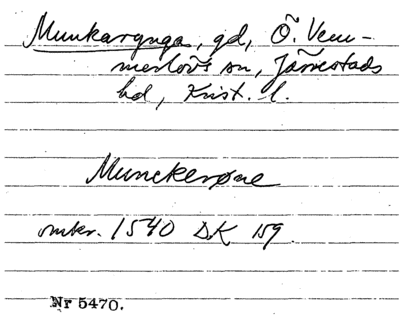 Munkarynga, gd, Ö. Vem-
merlövs sn, Järrestads
hd, Krist. l.
Munckerøne
omkr. 1540 DK 159.
Nr 5470.